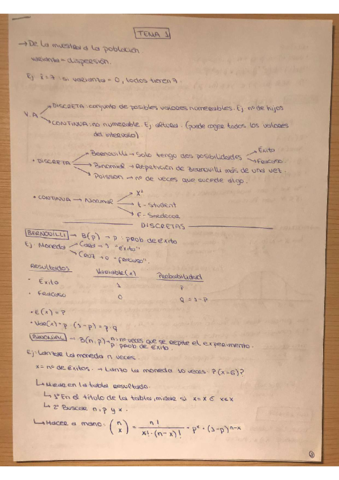 TEMA 1
→ De la muestra a la población
varianza = dispersión.
Ej: x̄ = 4 si varianza = 0, todos tienen 4.
V.A
DISCRETA: conjunto de posibles valores numerables. Ej nº de hijos
CONTINUA: no numerable. Ej altura (puede coger todos los valores
del intervalo)
• DISCRETA
Bernouilli → Solo tengo dos posibilidades
Exito
Fracaso
Binomial → Repetición de Bernouilli más de una vez
Poisson → nº de veces que sucede algo.
• CONTINUA → Normal
X²
t - Student
F - Snedecor
DISCRETAS
BERNOUILLI → B(p) → p: prob. de éxito
Ej Moneda
Cara → 1 "éxito"
Cruz → 0 "fracaso"
Resultados Variable (x) Probabilidad
• Exito 1 p
• Fracaso 0 q = 1-p
• E(x) = p
• Var(x) = p (1-p) = p·q
BINOMIAL → B(n,p) n: nº veces que se repite el experimento.
p: prob de éxito
Ej: Lanzar la moneda n veces.
x = nº de éxitos. → Lanzo la moneda 10 veces: P(x=8)?
↳ 1º En el título de la tabla, mirar si x = x o x ≤ x
↳ 2º Buscar n, p y x.
↳ Hacer a mano: (n x) = n! / x!·(n-x)! = pˣ · (1-p)ⁿ⁻ˣ